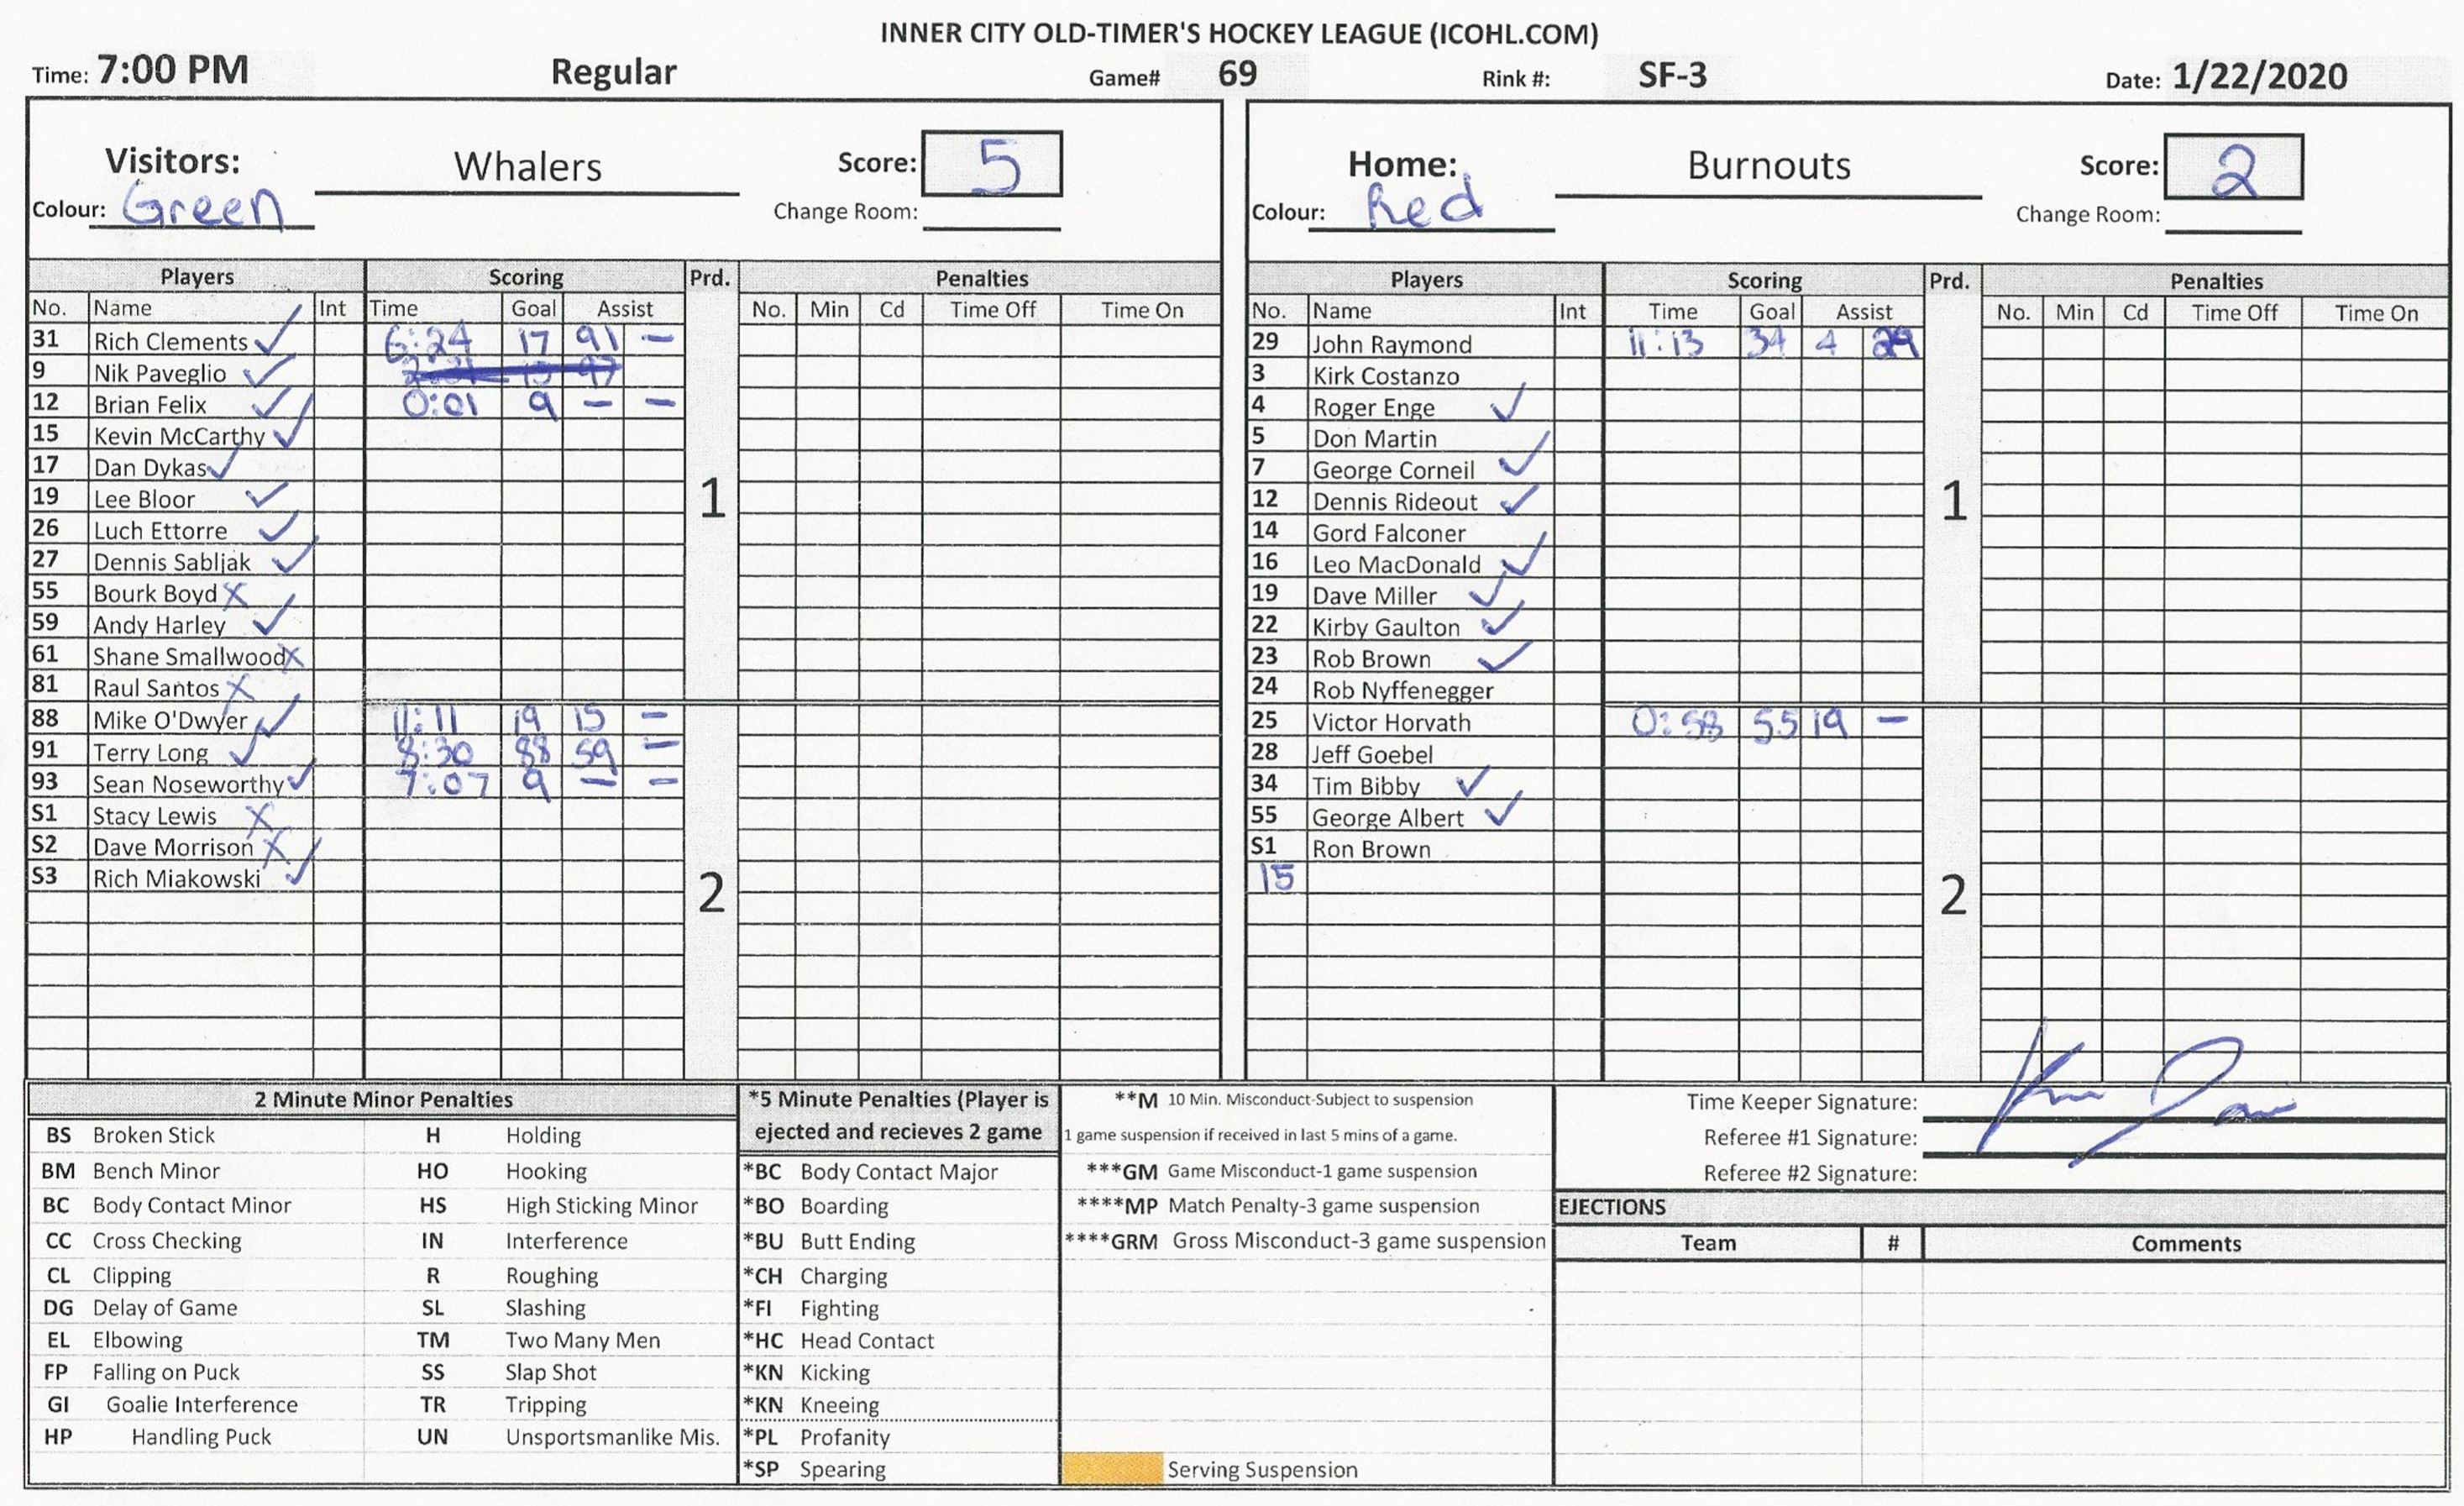 INNER CITY OLD-TIMER'S HOCKEY LEAGUE (ICOHL.COM)
Time: 7:00 PM Regular Game# 69 Rink #: SF-3 Date: 1/22/2020
Visitors: Whalers Score: 5
Colour: Green Change Room:
Home: Burnouts Score: 2
Colour: Red Change Room:
Players Scoring Prd. Penalties
No. Name Int Time Goal Assist No. Min Cd Time Off Time On
31 Rich Clements ✓ 6:24 17 91 –
9 Nik Paveglio ✓
12 Brian Felix ✓ 0:01 9 – –
15 Kevin McCarthy ✓
17 Dan Dykas ✓
19 Lee Bloor ✓
1
26 Luch Ettorre ✓
27 Dennis Sabljak ✓
55 Bourk Boyd X
59 Andy Harley ✓
61 Shane Smallwood X
81 Raul Santos X
88 Mike O'Dwyer ✓ 11:11 19 15 –
91 Terry Long ✓ 8:30 88 59 –
93 Sean Noseworthy ✓ 7:07 9 – –
S1 Stacy Lewis X
S2 Dave Morrison X
S3 Rich Miakowski ✓
2
Players Scoring Prd. Penalties
No. Name Int Time Goal Assist No. Min Cd Time Off Time On
29 John Raymond 11:13 34 4 29
3 Kirk Costanzo
4 Roger Enge ✓
5 Don Martin
7 George Corneil ✓
12 Dennis Rideout ✓
1
14 Gord Falconer
16 Leo MacDonald ✓
19 Dave Miller ✓
22 Kirby Gaulton ✓
23 Rob Brown ✓
24 Rob Nyffenegger
25 Victor Horvath 0:58 55 19 –
28 Jeff Goebel
34 Tim Bibby ✓
55 George Albert ✓
S1 Ron Brown
15
2
2 Minute Minor Penalties
BS Broken Stick H Holding
BM Bench Minor HO Hooking
BC Body Contact Minor HS High Sticking Minor
CC Cross Checking IN Interference
CL Clipping R Roughing
DG Delay of Game SL Slashing
EL Elbowing TM Two Many Men
FP Falling on Puck SS Slap Shot
GI Goalie Interference TR Tripping
HP Handling Puck UN Unsportsmanlike Mis.
*5 Minute Penalties (Player is
ejected and recieves 2 game
*BC Body Contact Major
*BO Boarding
*BU Butt Ending
*CH Charging
*FI Fighting
*HC Head Contact
*KN Kicking
*KN Kneeing
*PL Profanity
*SP Spearing
**M 10 Min. Misconduct-Subject to suspension
1 game suspension if received in last 5 mins of a game.
***GM Game Misconduct-1 game suspension
****MP Match Penalty-3 game suspension
****GRM Gross Misconduct-3 game suspension
Serving Suspension
Time Keeper Signature:
Referee #1 Signature:
Referee #2 Signature:
EJECTIONS
Team # Comments